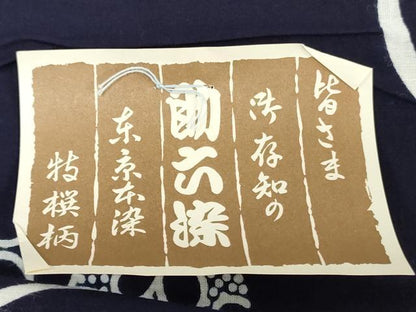 皆さま
御存知の
助六染
东京本染
特撰柄